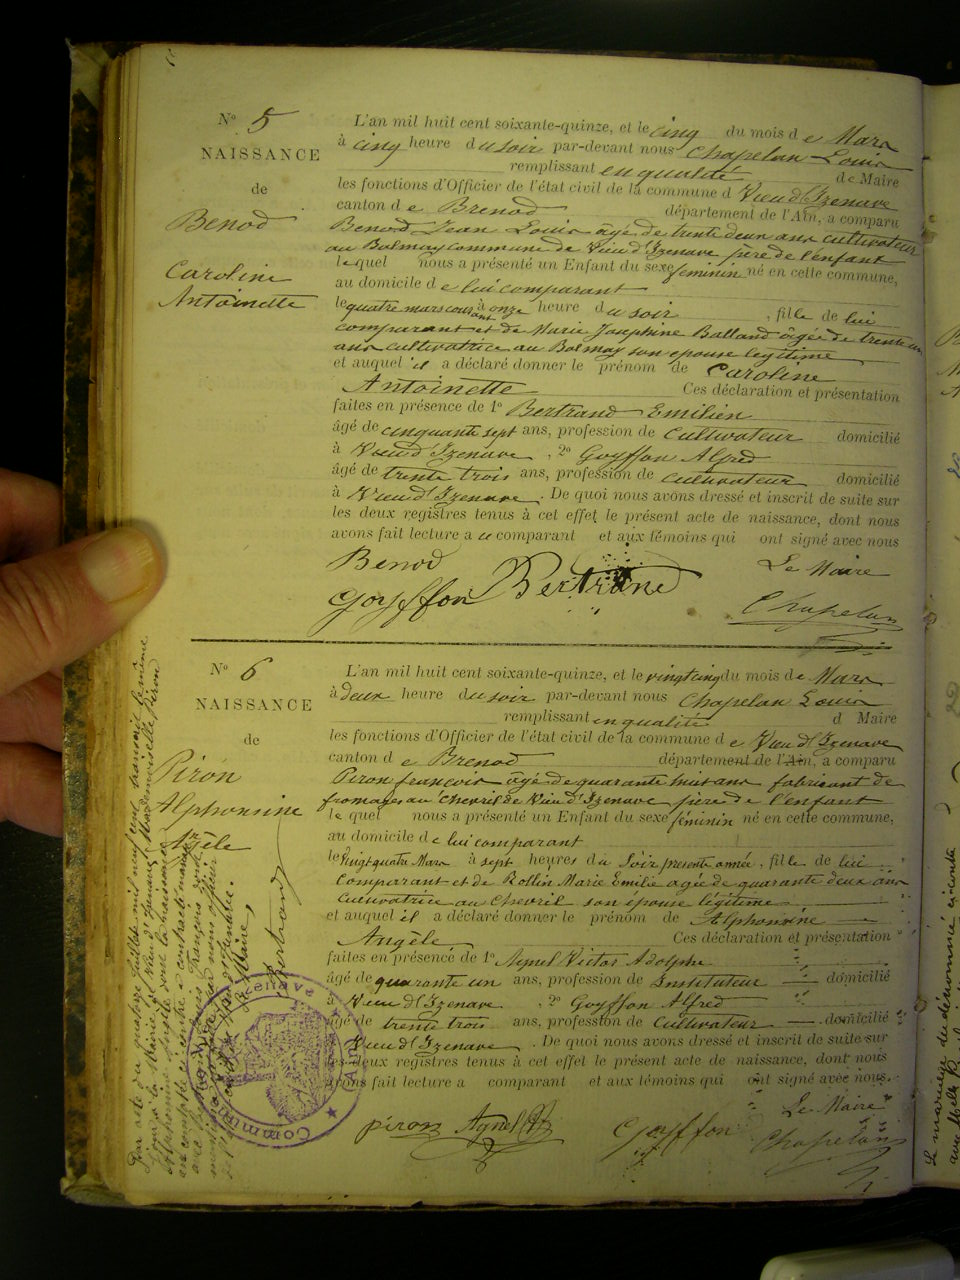 N° 5
NAISSANCE
de
Benod
Caroline
Antoinette
L'an mil huit cent soixante-quinze, et le cinq du mois d e Mars
à cinq heure du soir par-devant nous Chapelan Louis
remplissant en qualité de Maire
les fonctions d'Officier de l'état civil de la commune d Vieu d'Izenave
canton d e Brenod département de l'Ain, a comparu
Benod Jean Louis âgé de trente deux ans cultivateur
au Balmay commune de Vieu d'Izenave père de l'enfant
lequel nous a présenté un Enfant du sexe féminin né en cette commune,
au domicile d e lui comparant
le quatre mars courant à onze heure du soir , fille de lui
comparant et de Marie Josephine Balland âgée de trente un
ans cultivatrice au Balmay son épouse légitime
et auquel il a déclaré donner le prénom de Caroline
Antoinette Ces déclaration et présentation
faites en présence de 1° Bertrand Emilien
âgé de cinquante sept ans, profession de Cultivateur domicilié
à Vieu d'Izenave , 2° Goyffon Alfred
âgé de trente trois ans, profession de cultivateur domicilié
à Vieu d'Izenave . De quoi nous avons dressé et inscrit de suite sur
les deux registres tenus à cet effet le présent acte de naissance, dont nous
avons fait lecture au comparant et aux témoins qui ont signé avec nous
Benod
Goyffon Bertrand
Le Maire
Chapelan
N° 6
NAISSANCE
de
Piron
Alphonsine
Angèle
L'an mil huit cent soixante-quinze, et le vingt cinq du mois de Mars
à deux heure du soir par-devant nous Chapelan Louis
remplissant en qualité d Maire
les fonctions d'Officier de l'état civil de la commune d e Vieu d'Izenave
canton d e Brenod département de l'Ain, a comparu
Piron françois âgé de quarante huit ans fabricant de
fromages au Chevril de Vieu d'Izenave père de l'enfant
le quel nous a présenté un Enfant du sexe féminin né en cette commune,
au domicile de lui comparant
le vingt quatre Mars à sept heures du Soir présente année , fille de lui
Comparant et de Rollin Marie Emilie agée de quarante deux ans
Cultivatrice au Chevril son épouse légitime
et auquel il a déclaré donner le prénom de Alphonsine
Angèle Ces déclaration et présentation
faites en présence de 1° Agnel Victor Adolphe
âgé de quarante un ans, profession de Instituteur domicilié
Vieu d'Izenave , 2° Goyffon Alfred
âgé de trente trois ans, profession de Cultivateur domicilié
Vieu d'Izenave . De quoi nous avons dressé et inscrit de suite sur
les deux registres tenus à cet effet le présent acte de naissance, dont nous
avons fait lecture a comparant et aux témoins qui ont signé avec nous.
Le Maire
piron Agnel Goyffon Chapelan
Par acte du quatorze Juillet mil neuf cent
Mademoiselle Piron
Alphonsine Angèle dont la naissance
est constatée ci-contre a contracté mariage
Le Maire,
Bertrand
Le mariage du dénommé ci-contre